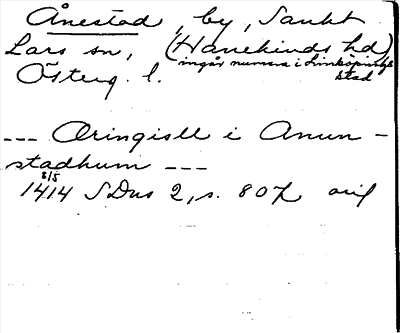 Ånestad, by, Sankt
Lars sn, (Hanekinds hd)
ingår numera i Linköpings
stad
Österg. l.
--- Aringisle i Anun-
stadhum ---
8/5
1414 SDns 2, s. 807 orig